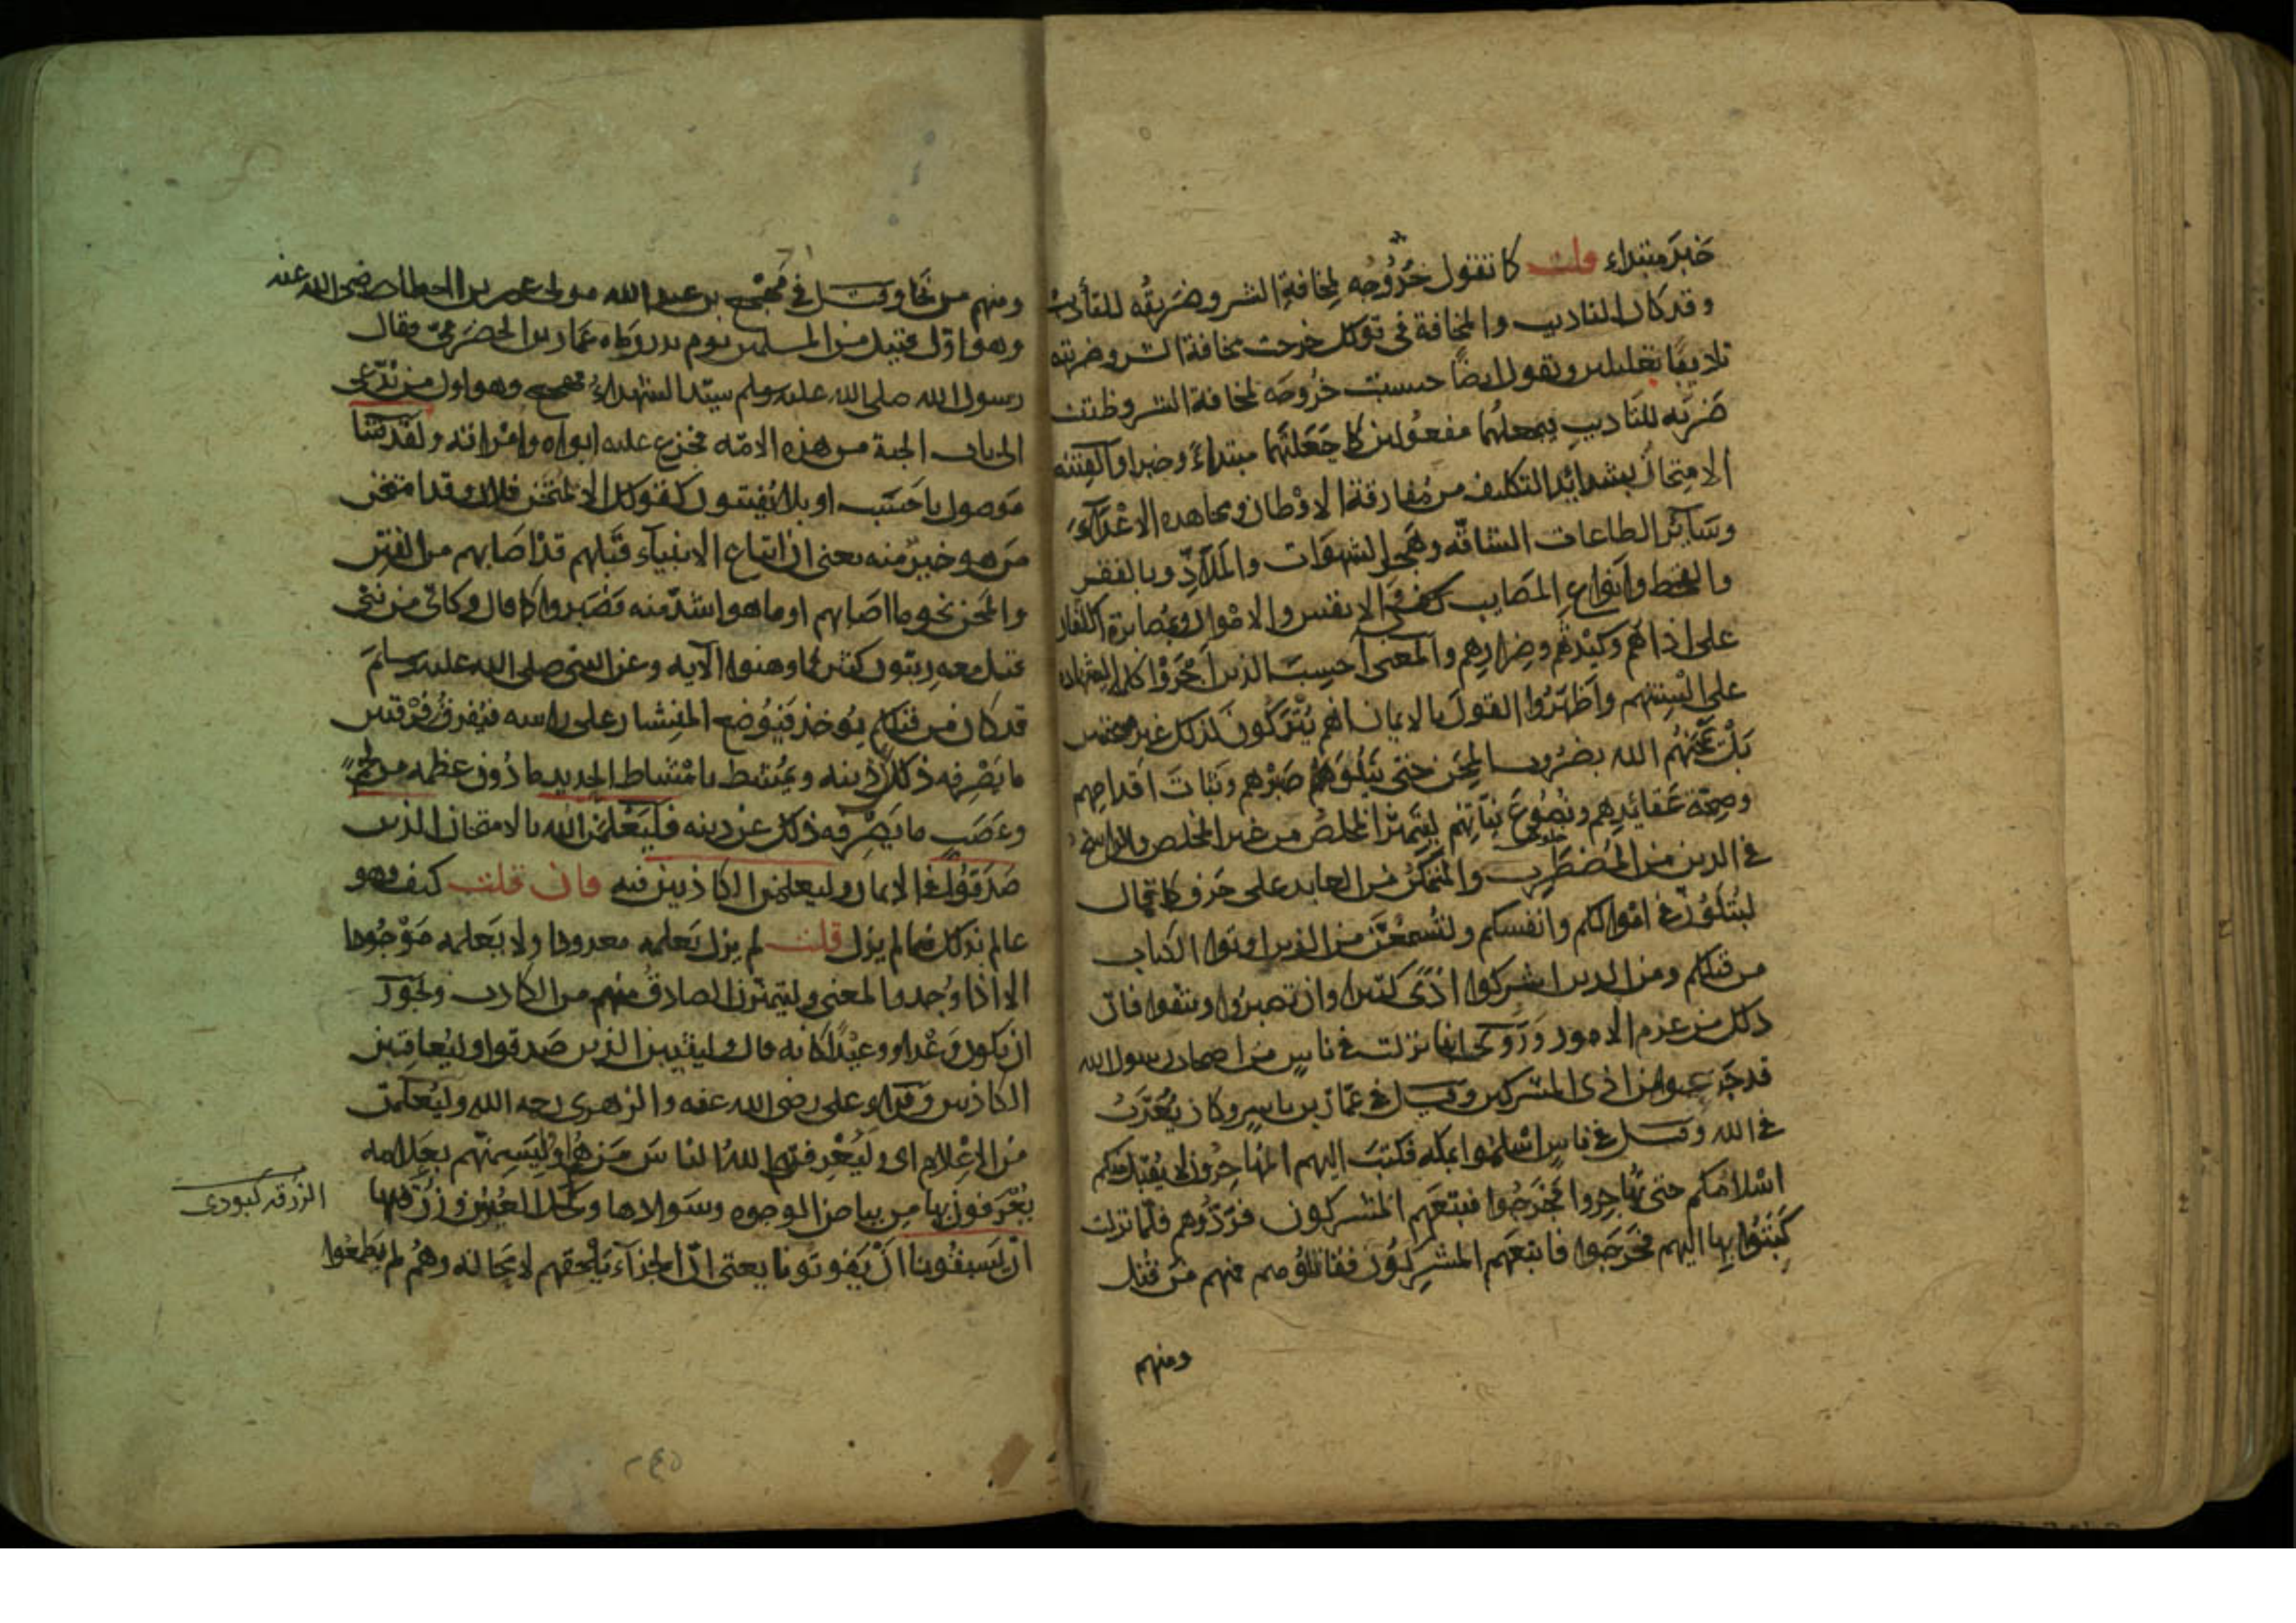 خبر مبتداء قلت كما تقول خروجه لمخافة الشر وضربه للتأديب
وقد كان التاديب والمخافة في قولك خرجت مخافة الشر وضربته
تاديبا تعليلين وتقول ايضا حسبت خروجه لمخافة الشر وظننت
ضربه للتاديب فيجعلهما مفعولين كما جعلتهما مبتداء وخبرا والفتنة
الامتحان بشدائد التكليف من مفارقة الاوطان ومجاهدة الاعداء
وسائر الطاعات الشاقه وهجر الشهوات والملاذ وبالفقر
والقحط وانواع المصايب في الانفس والاموال ومصابرة الكفار
على اذاهم وكيدهم وضرارهم والمعنى احسب الذين اجروا كلمة الشهادة
على السنتهم واظهروا القول بالايمان انهم يتركون لذلك غير ممتحنين
بل يمتحنهم الله بضروب المحن حتى يبلو صبرهم وثبات اقدامهم
وصحة عقائدهم ونصوع نياتهم ليتميز المخلص من غير المخلص والراسخ
في الدين من المضطرب والمتمكن من العابد على حرف كما قال
لتبلون في اموالكم وانفسكم ولتسمعن من الذين اوتوا الكتاب
من قبلكم ومن الذين اشركوا اذى كثيرا وان تصبروا وتتقوا فان
ذلك من عزم الامور وروى انها نزلت في ناس من اصحاب رسول الله
قد جزعوا من اذى المشركين وقيل في عمار بن ياسر وكان يعذب
في الله وقيل في ناس اسلموا بمكه فكتب اليهم المهاجرون لا يقبل منكم
اسلامكم حتى تهاجروا فخرجوا فتبعهم المشركون فردوهم فلما نزلت
كتبوا بها اليهم فخرجوا فاتبعهم المشركون فقاتلوهم فمنهم من قتل
ومنهم
ومنهم من نجا وقيل في مهجع بن عبد الله مولى عمر بن الخطاب رضى الله عنه
وهو اول قتيل من المسلمين يوم بدر رماه عامر بن الحضرمي فقال
رسول الله صلى الله عليه وسلم سيد الشهداء مهجع وهو اول من يدعى
الى باب الجنة من هذه الامه فجزع عليه ابواه وامراته ولقد فتنا
موصول باحسب او بلا يفتنون كقولك الا يمتحن فلان وقد امتحن
من هو خير منه يعنى ان اتباع الانبياء قبلهم قد اصابهم من الفتن
والمحن نحو ما اصابهم او ما هو اشد منه فصبروا كما قال وكاين من نبى
قتل معه ربيون كثير فما وهنوا الآيه وعن النبى صلى الله عليه وسلم
قد كان من قبلكم يوخذ فيوضع المنشار على راسه فيفرق فرقتين
ما يصرفه ذلك عن دينه ويمشط بامشاط الحديد ما دون عظمه من لحم
وعصب ما يصرفه ذلك عن دينه فليعلمن الله بالامتحان الذين
صدقوا في الايمان وليعلمن الكاذبين فيه فان قلت كيف وهو
عالم بذلك فيما لم يزل قلت لم يزل يعلمه معدوما ولا يعلمه موجودا
الا اذا وجد والمعنى وليتميزن الصادق منهم من الكاذب ويجوز
ان يكون وعدا ووعيدا كانه قال وليثيبن الذين صدقوا وليعاقبن
الكاذبين وقراء على رضى الله عنه والزهرى رحمه الله وليعلمن
من الاعلام اى وليعرفنهم الله الناس من هم او ليسمنهم بعلامه
يعرفون بها من بياض الوجوه وسوادها وكحل العيون وزرقتها
ان يسبقونا ان يفوتونا يعنى ان الجزاء يلحقهم لا محاله وهم لم يطمعوا
الزرقه كبودى
٢٤٥